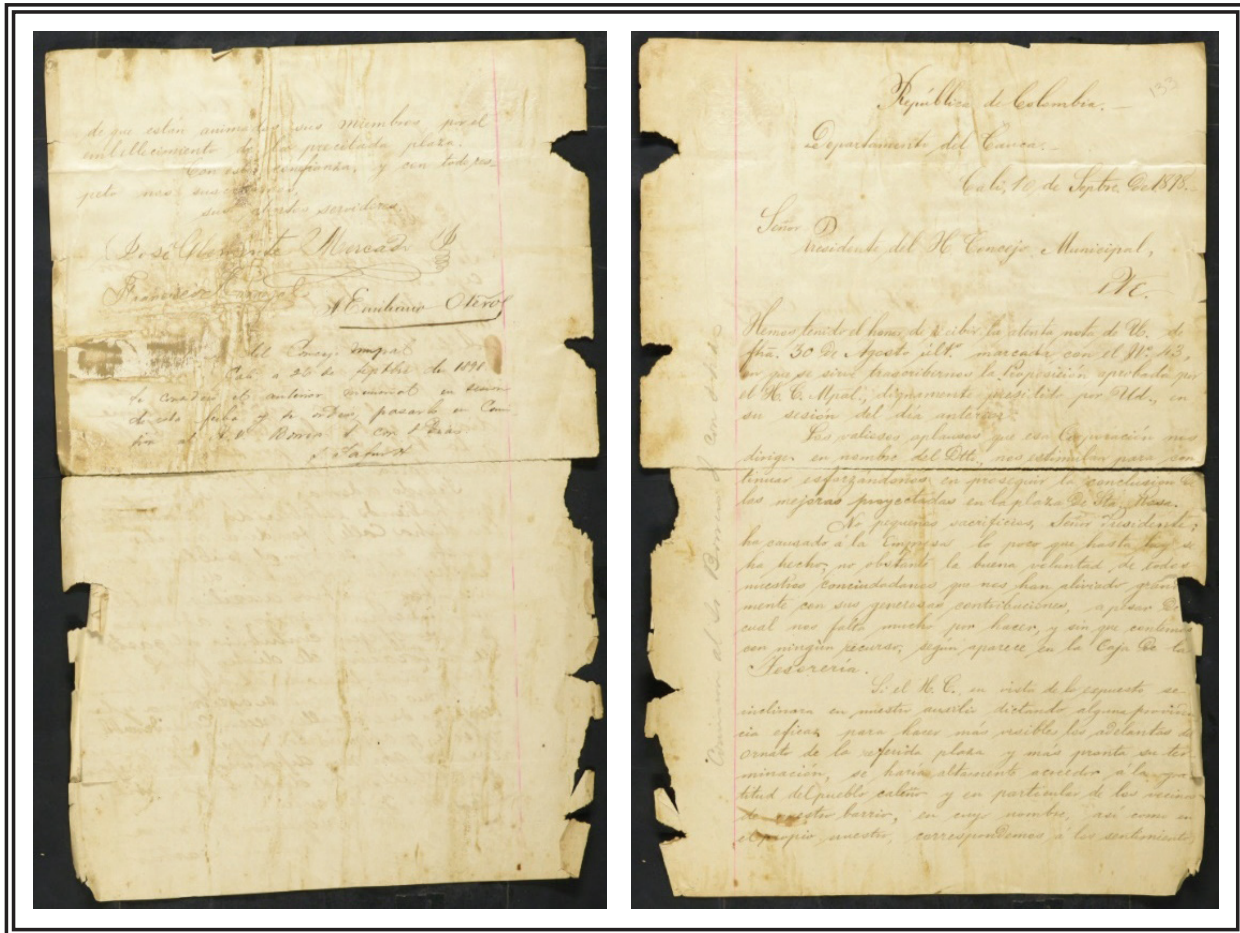 de que están animados sus miembros por el
embellecimiento de la precitada plaza.
Con esta confianza, y con todo res-
peto nos suscribimos,
sus atentos servidores
José Mercado
Francisco
Emiliano Otero
del Concejo mpal
Cali a 22 de Septbre de 1898
Se consideró el anterior memorial en sesión
de esta fecha y se ordenó pasarlo en Comi-
sión al
133
República de Colombia.—
Departamento del Cauca.—
Cali, 10 de Septre. de 1898.—
Señor
Presidente del H Concejo Municipal,
Hemos tenido el honor de recibir la atenta nota de U. de
fha. 30 de Agosto últº. marcada con el Nº. 43,
en que se sirve trascribirnos la proposición aprobada por
el H. C. Mpal., dignamente presidido por Ud., en
su sesión del día anterior.
Los valiosos aplausos que esa Corporación nos
dirige en nombre del Dtto., nos estimulan para con
tinuar esforzándonos en proseguir la conclusión de
las mejoras proyectadas en la plaza de Sta. Rosa.
No pequeños sacrificios, Señor Presidente,
ha causado á la Empresa lo poco que hasta hoy se
ha hecho, no obstante la buena voluntad de todos
nuestros conciudadanos que nos han aliviado grande
mente con sus generosas contribuciones, a pesar de
cual nos falta mucho por hacer, y sin que contemos
con ningún recurso, según aparece en la Caja de la
Tesorería.
Si el H. C., en vista de lo expuesto se
inclinara en nuestro auxilio dictando alguna providen
cia eficaz para hacer más visibles los adelantos de
ornato de la referida plaza y más pronta su ter
minación, se haría altamente acreedor á la gra
titud del pueblo caleño y en particular de los vecinos
de nuestro barrio, en cuyo nombre, así como en
el propio nuestro, correspondemos a los sentimientos